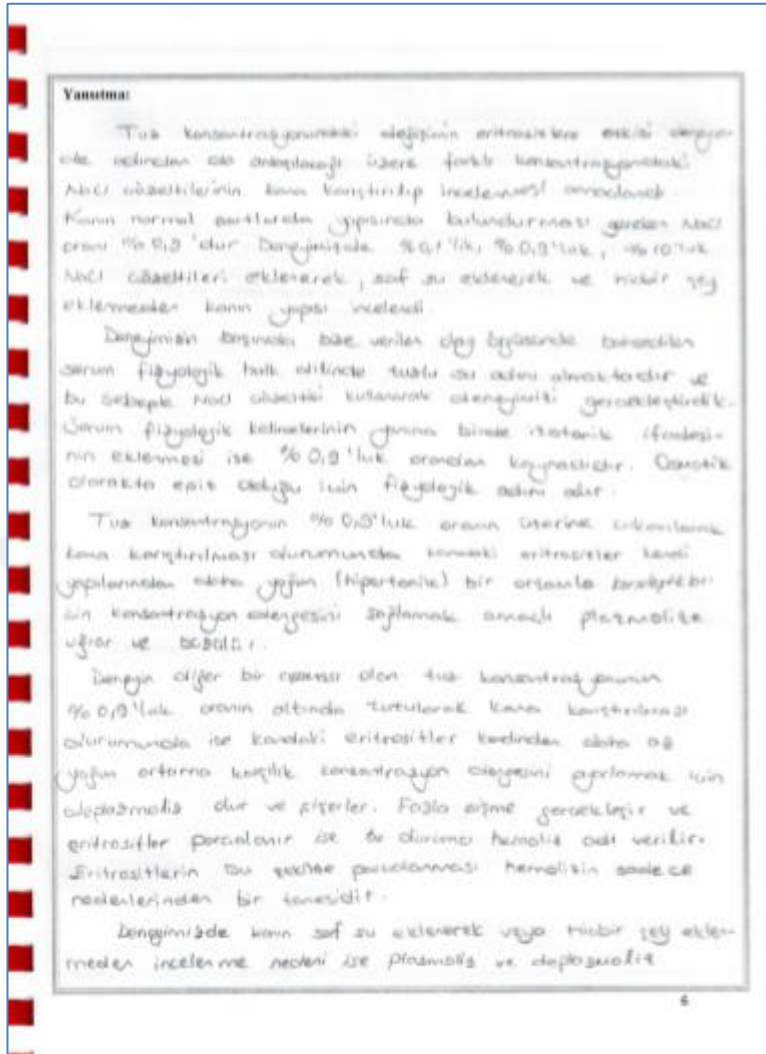 Yansıtma:
Tuz konsantrasyonundaki değişimin eritrositlere etkisi deneyin-
de adından da anlaşılacağı üzere farklı konsantrasyondaki
NaCl çözeltilerinin kana karıştırılıp incelenmesi amaçlandı.
Kanın normal şartlarda yapısında bulundurması gereken NaCl
oranı %0,9'dur Deneyimizde %0,1'lik, %0,9'luk, %10'luk
NaCl çözeltileri eklenerek, saf su eklenerek ve hiçbir şey
eklenmeden kanın yapısı incelendi
Deneyimizin başında bize verilen olay örgüsünde bahsedilen
serum fizyolojik halk dilinde tuzlu su adını almaktadır ve
bu sebeple NaCl çözeltisi kullanarak deneyimizi gerçekleştirdik.
Serum fizyolojik kelimelerinin yanına birde izotonik ifadesi-
nin eklenmesi ise %0,9'luk orandan kaynaklıdır. Osmotik
olarakta eşit olduğu için fizyolojik adını alır.
Tuz konsantrasyonun %0,9'luk oranın üzerine çıkarılarak
kana karıştırılması durumunda kandaki eritrositler kendi
yapılarından daha yoğun (hipertonik) bir ortamla
için konsantrasyon dengesini sağlamak amaçlı plazmolize
uğrar ve büzülür.
Deneyin diğer bir olan tuz konsantrasyonunun
%0,9'luk oranın altında tutularak kana karıştırılması
durumunda ise kandaki eritrositler kendinden daha az
yoğun ortama karşılık konsantrasyon dengesini ayarlamak için
deplazmoliz olur ve şişerler. Fazla şişme gerçekleşir ve
eritrositler parçalanır ise bu duruma hemoliz adı verilir.
Eritrositlerin bu şekilde parçalanması hemolizin sadece
nedenlerinden bir tanesidir.
Deneyimizde kanın saf su eklenerek veya hiçbir şey eklen-
meden incelenme nedeni ise plazmoliz ve deplazmoliz
6